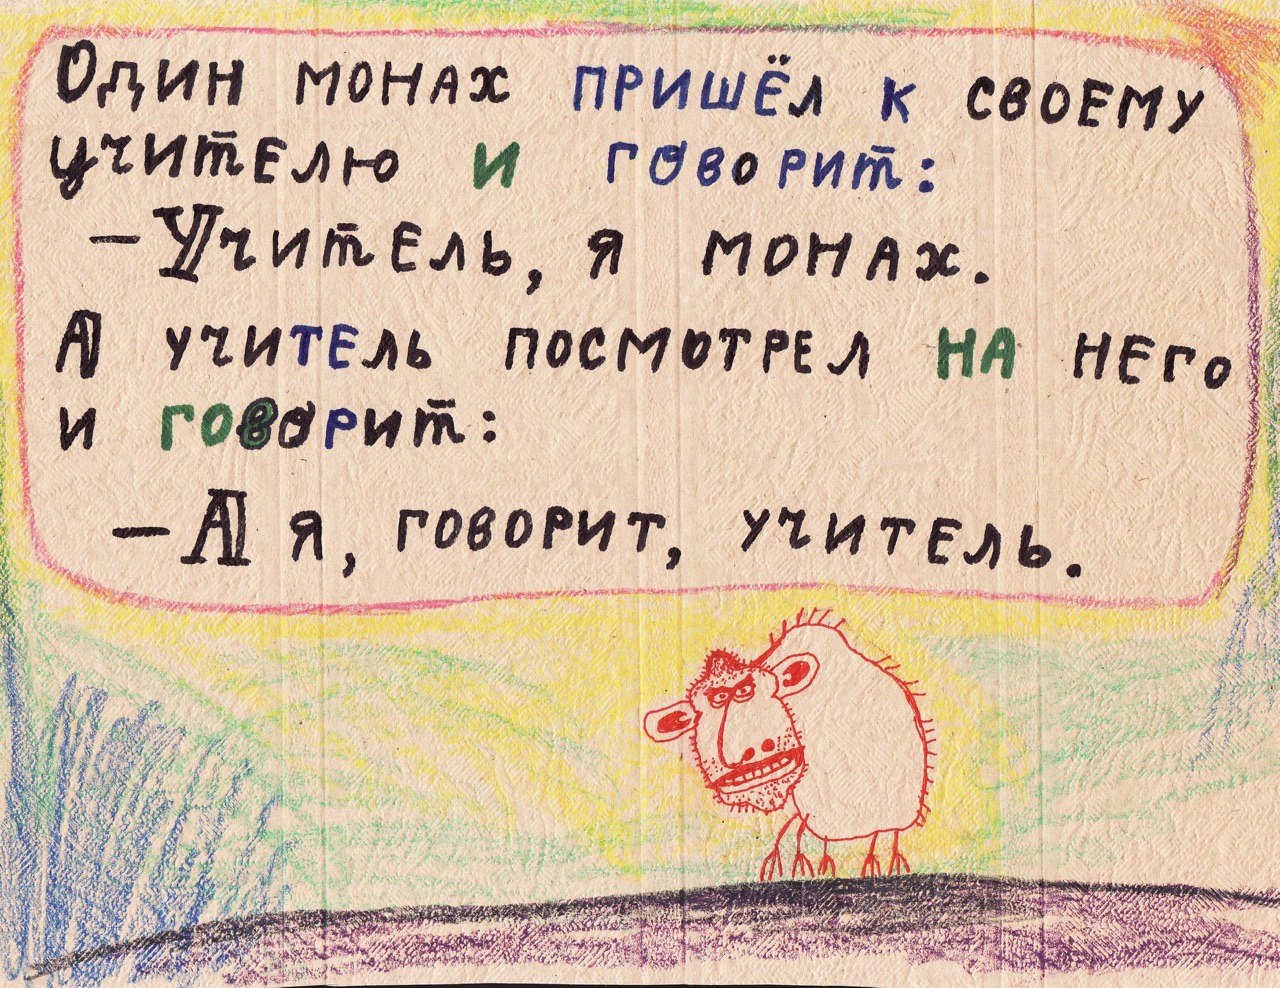 Один монах пришёл к своему
учителю и говорит:
– Учитель, я монах.
А учитель посмотрел на него
и говорит:
– А я, говорит, учитель.